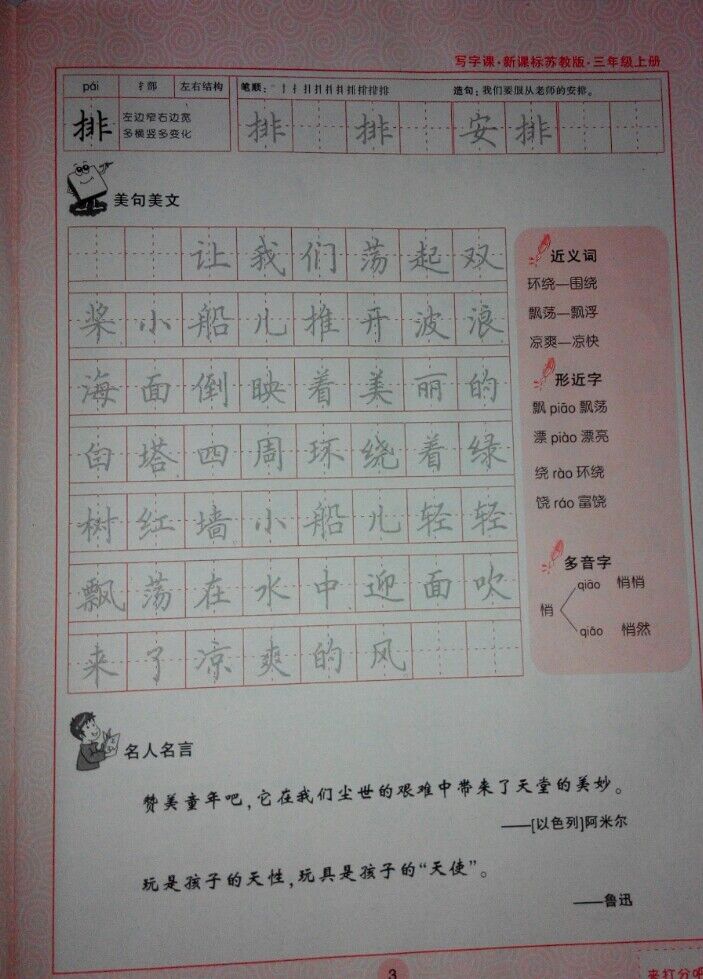 写字课·新课标苏教版·三年级上册
pái 扌部 左右结构
排
左边窄右边宽
多横竖多变化
笔顺：
造句：我们要服从老师的安排。
排 排 安排
美句美文
让我们荡起双
桨小船儿推开波浪
海面倒映着美丽的
白塔四周环绕着绿
树红墙小船儿轻轻
飘荡在水中迎面吹
来了凉爽的风
近义词
环绕—围绕
飘荡—飘浮
凉爽—凉快
形近字
飘 piāo 飘荡
漂 piào 漂亮
绕 rào 环绕
饶 ráo 富饶
多音字
悄
qiāo 悄悄
qiǎo 悄然
名人名言
赞美童年吧，它在我们尘世的艰难中带来了天堂的美妙。
——[以色列]阿米尔
玩是孩子的天性，玩具是孩子的“天使”。
——鲁迅
3
来打分吧